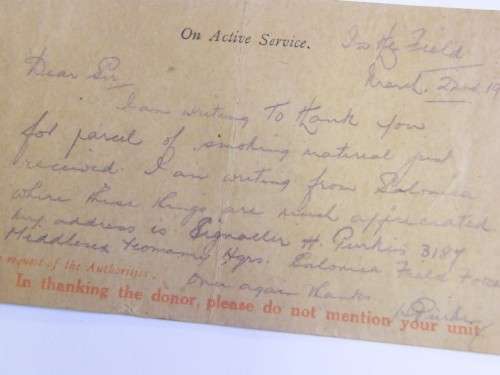 On Active Service.
In the Field
March 22nd 19
Dear Sir,
I am writing to thank you
for parcel of smoking material just
received. I am writing from Salonica
where these things are much appreciated
my address is Signaller H. Perkins 3187
Middlesex Yeomanry Hqrs. Salonica Field Force
request of the Authorities.
Once again thanks
In thanking the donor, please do not mention your unit